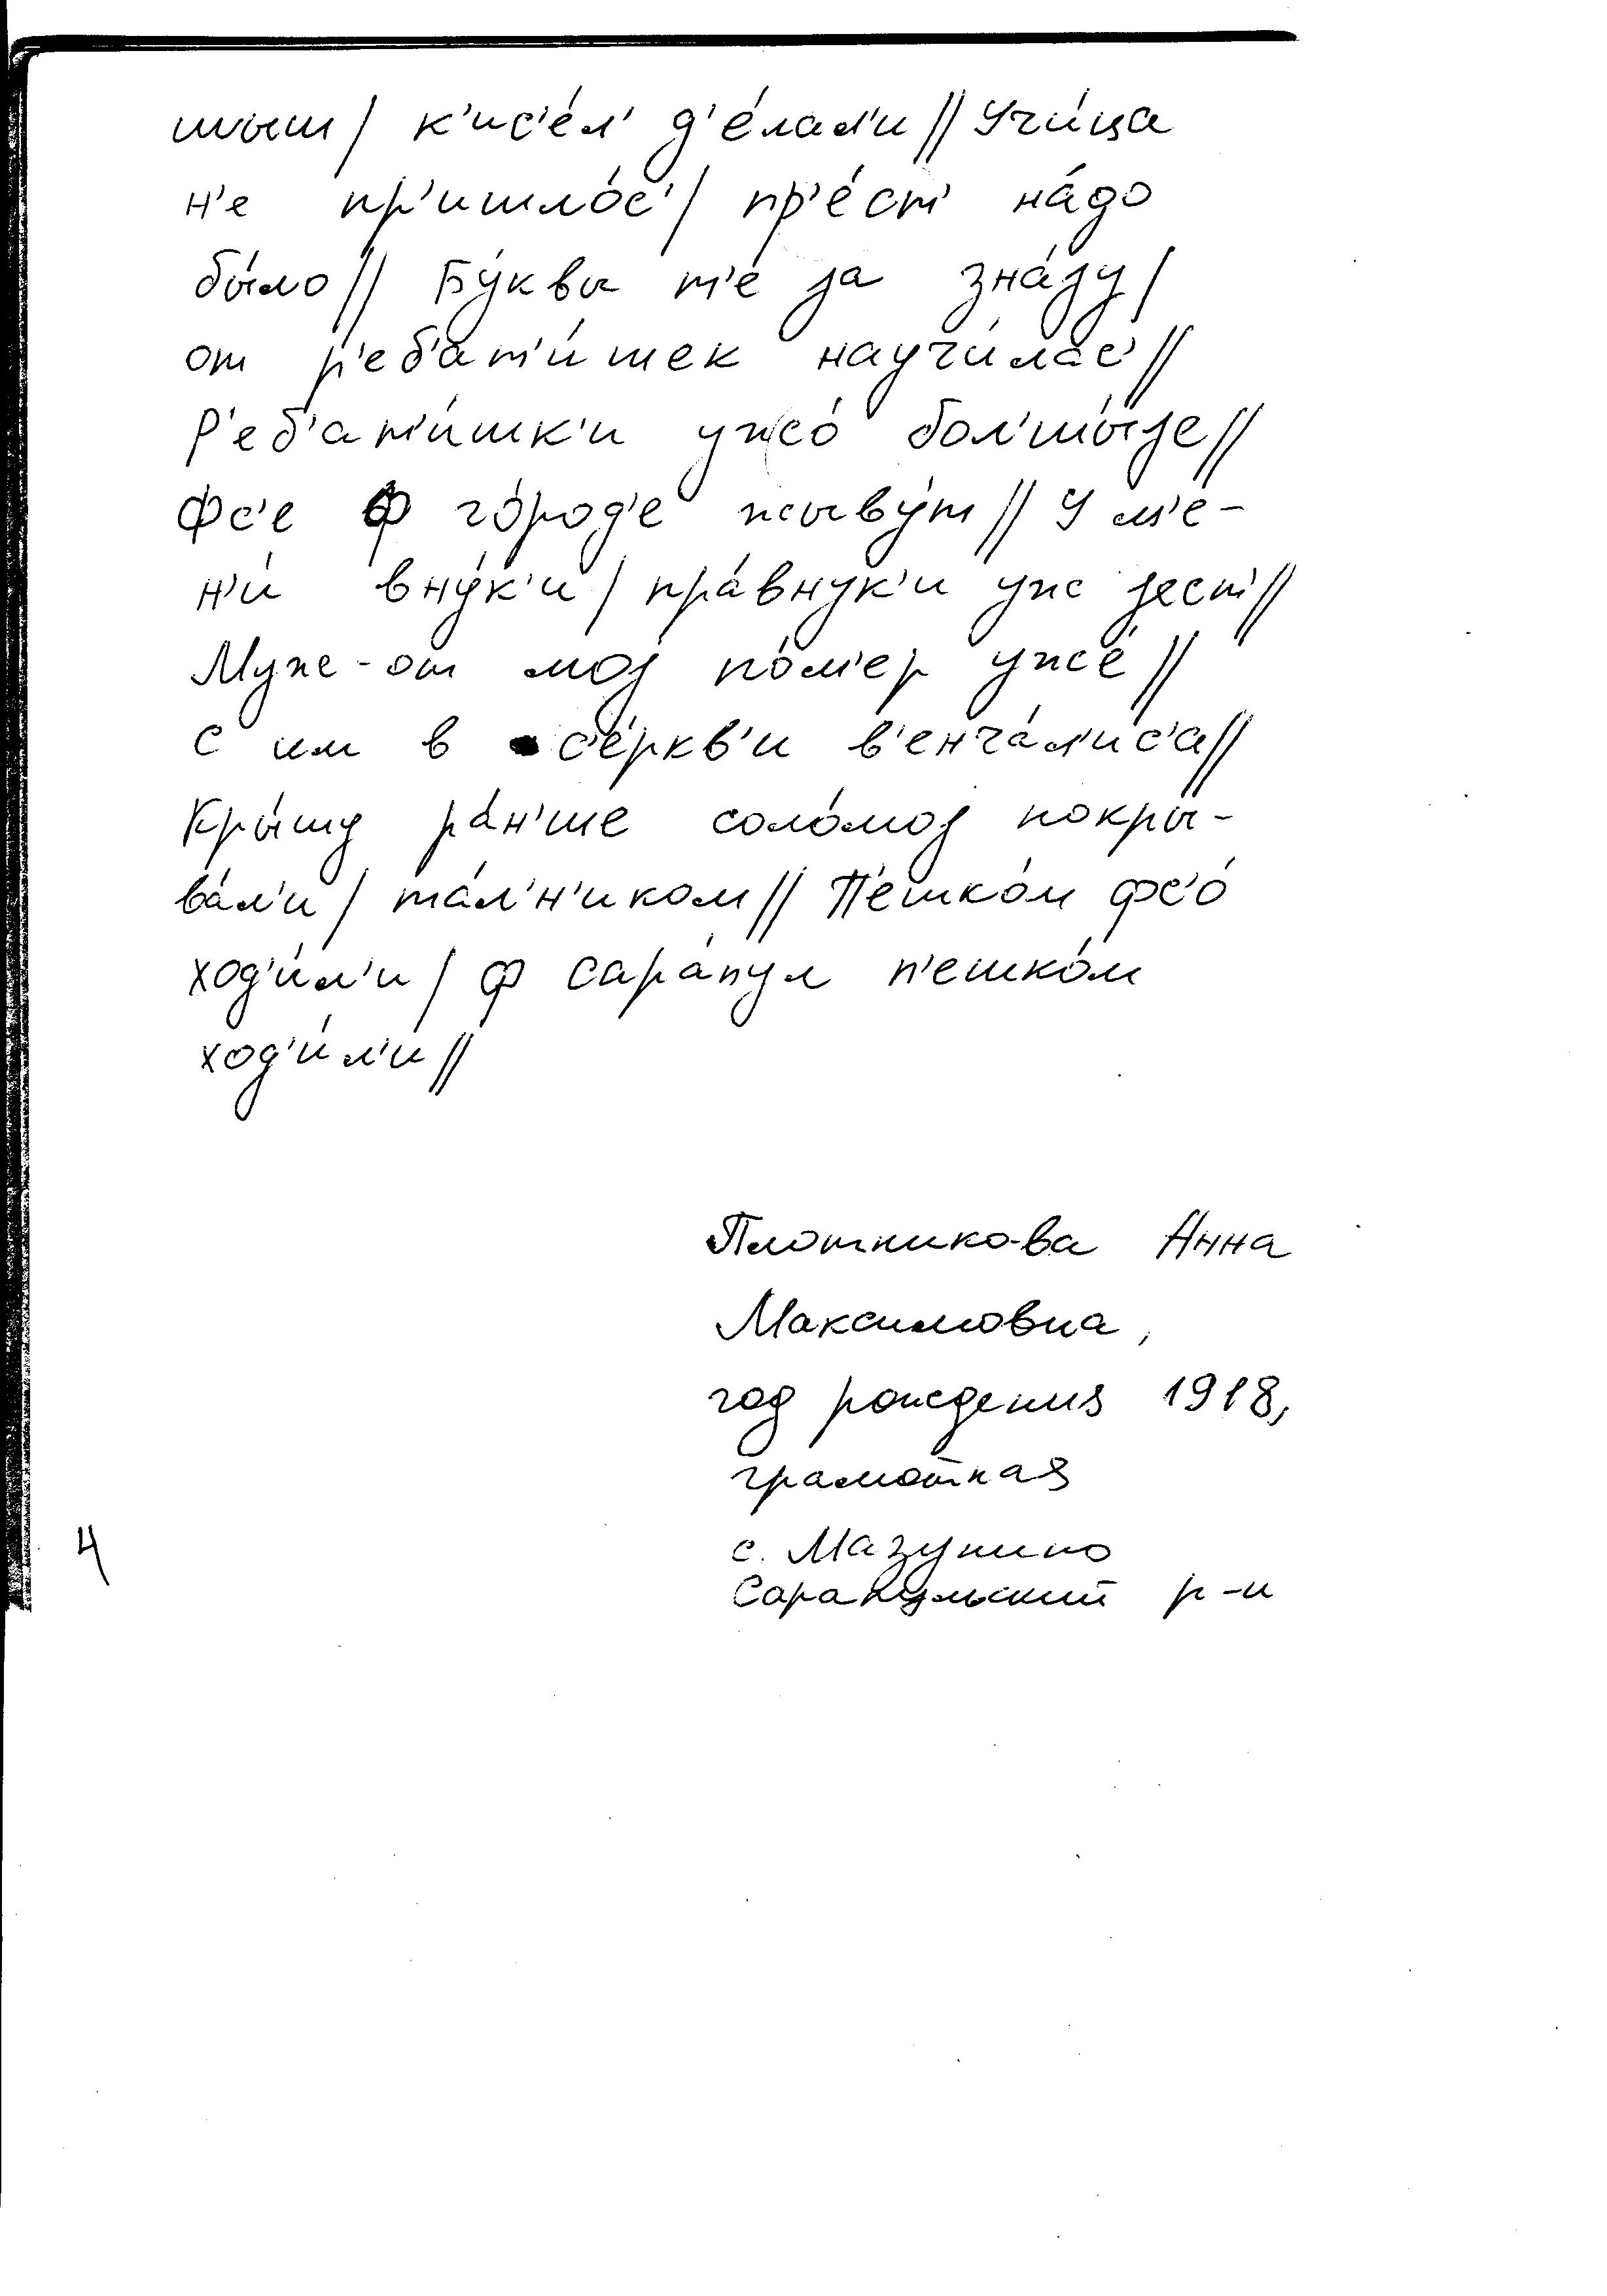 тыш/ к'ис'е́л' д'е́лал'и// Учи́ца
н'е пр'ишло́с'/ пр'е́ст' на́до
бы́ло// Бу́квы т'е ја зна́ју/
от р'еб'ат'и́шек научи́лас'//
Р'еб'ат'и́шк'и ужо́ бол'шы́је//
Фс'е ф го́род'е жыву́т// У м'е-
н'и́ вну́к'и/ пра́внук'и уж јест'//
Муже-от мој по́м'ер уже́//
с им в с'е́ркв'и в'енча́л'ис'а//
Кры́шу ра́н'ше соло́мој покры-
ва́л'и/ та́л'н'иком// П'ешко́м фс'о́
ход'и́л'и/ ф Сара́пул п'ешко́м
ход'и́л'и//
Плотникова Анна
Максимовна,
год рождения 1918,
грамотная
с. Мазунино
Сарапульский р-н
4